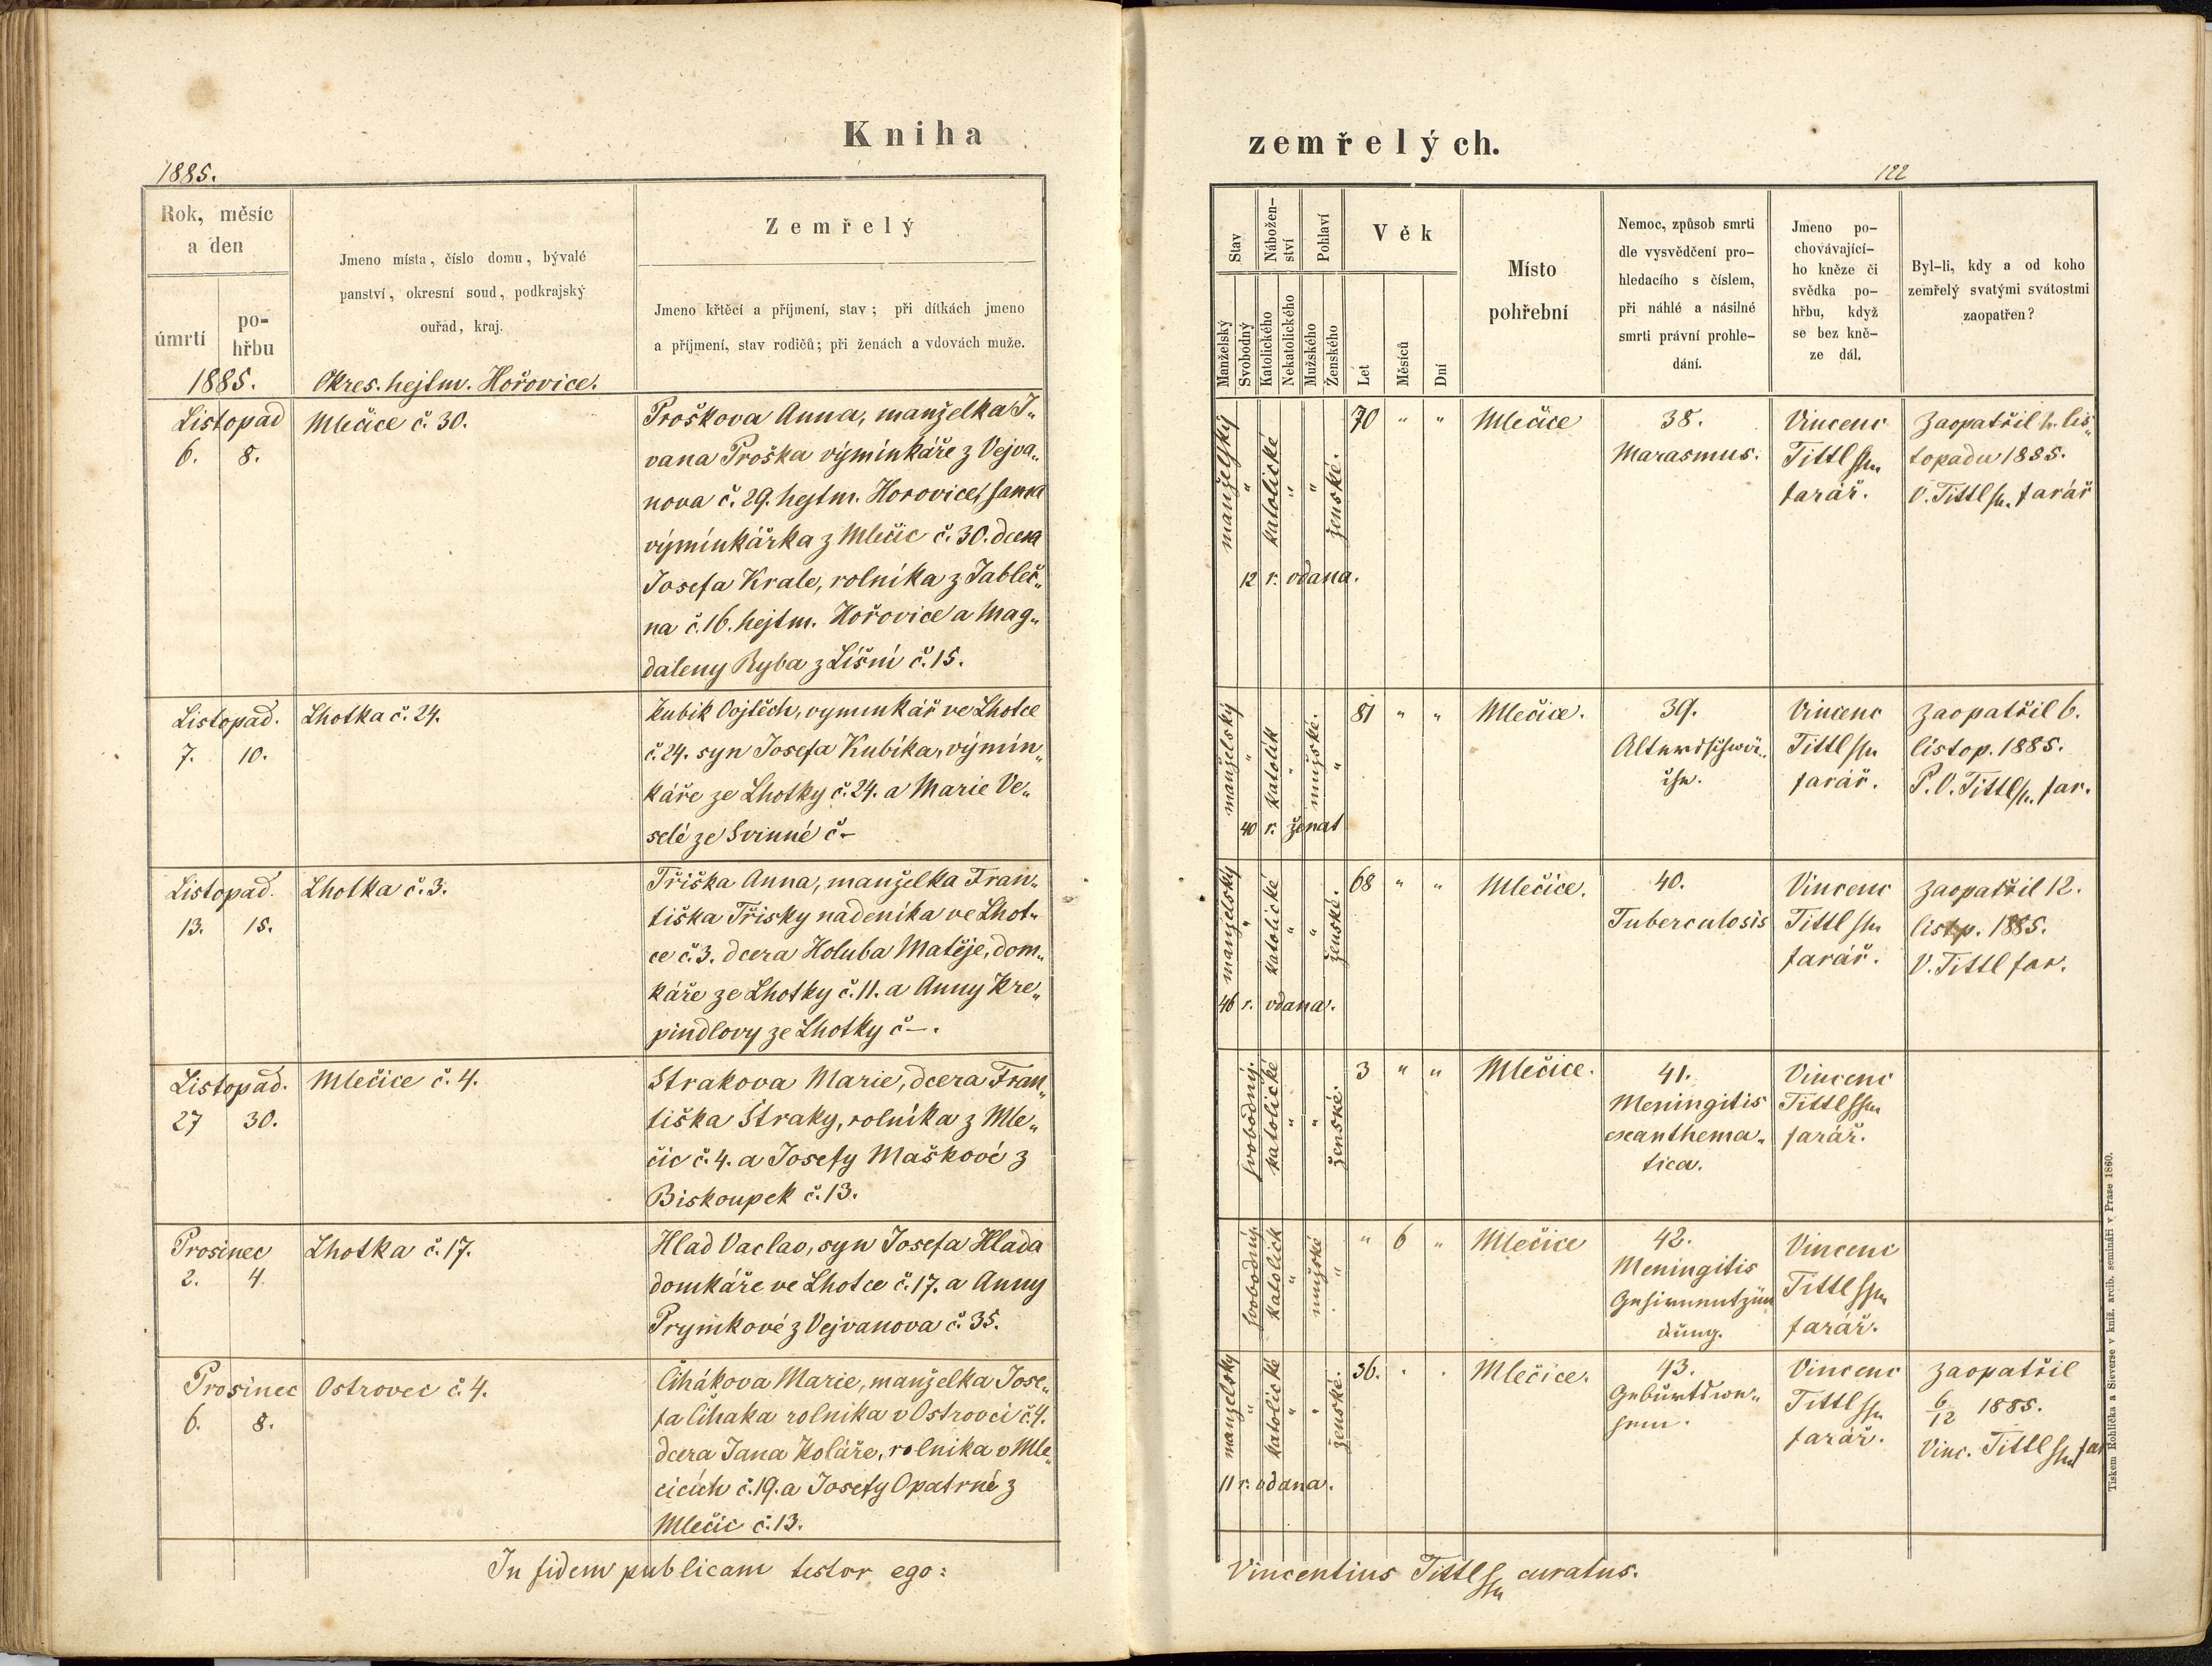 Kniha
zemřelých.
1885.
122
Rok, měsíc
a den
úmrtí
po-
hřbu
Jmeno místa, číslo domu, bývalé
panství, okresní soud, podkrajský
ouřad, kraj.
Zemřelý
Jmeno křtěcí a příjmení, stav; při dítkách jmeno
a příjmení, stav rodičů; při ženách a vdovách muže.
Stav
Nábožen-
ství
Pohlaví
Věk
Manželský
Svobodný
Katolického
Nekatolického
Mužského
Ženského
Let
Měsíců
Dní
Místo
pohřební
Nemoc, způsob smrti
dle vysvědčení pro-
hledacího s číslem,
při náhlé a násilné
smrti právní prohle-
dání.
Jmeno po-
chovávající-
ho kněze či
svědka po-
hřbu, když
se bez kně-
ze dál.
Byl-li, kdy a od koho
zemřelý svatými svátostmi
zaopatřen?
1885.
Okres. hejtm. Hořovice.
Listopad
6. 8.
Mlečice č. 30.
Proškova Anna, manželka J„
vana Proška výminkáře z Vejva„
nova č. 29. hejtm. Horovice, sama
výminkářka z Mlečic č. 30. dcera
Josefa Krale, rolníka z Jableč„
na č. 16. hejtm. Hořovice a Mag„
daleny Ryba z Líšní č. 15.
manželský
"
katolické
"
"
ženské.
12 r. vdana.
70 " "
Mlečice
38.
Marasmus.
Vincenc
Tittl
farář.
Zaopatřil lis„
topadu 1885.
V. Tittl farář
Listopad.
7. 10.
Lhotka č. 24.
Kubik Vojtěch, vyminkář ve Lhotce
č. 24. syn Josefa Kubíka, výmin„
káře ze Lhotky č. 24. a Marie Ve„
selé ze Svinné č –
manželský
"
katolík
"
mužské.
"
40 r. ženat
81 " "
Mlečice.
39.
Vincenc
Tittl
farář.
Zaopatřil 6.
listop. 1885.
P. V. Tittl far.
Listopad.
13. 15.
Lhotka č. 3.
Tříška Anna, manželka Fran„
tiška Třisky nadeníka ve Lhot„
ce č. 3. dcera Holuba Matěje, dom„
káře ze Lhotky č. 11. a Anny Kre„
pindlovy ze Lhotky č –.
manželský
"
katolické
"
"
ženské.
46 r. vdana.
68 " "
Mlečice.
40.
Tuberculosis
Vincenc
Tittl
farář.
Zaopatřil 12.
listp. 1885.
V. Tittl far.
Listopad.
27 30.
Mlečice č. 4.
Strakova Marie, dcera Fran„
tiška Straky, rolníka z Mle„
čic č. 4. a Josefy Maškové z
Biskoupek č. 13.
svobodný.
katolické
"
"
ženské.
3 " "
Mlečice.
41.
Meningitis
exanthema„
tica.
Vincenc
Tittl
farář.
Prosinec
2. 4.
Lhotka č. 17.
Hlad Vaclav, syn Josefa Hlada
domkáře ve Lhotce č. 17. a Anny
Prymkové z Vejvanova č. 35.
svobodný.
katolick
"
mužské
"
" 6 "
Mlečice
42.
Meningitis
Gehirnentzün
dung.
Vincenc
Tittl
farář.
Prosinec
6. 8.
Ostrovec č. 4.
Čihákova Marie, manželka Jose„
fa Cihaka rolnika v Ostrovci č. 4.
dcera Jana Koláře, rolnika v Mle„
cicích č. 19. a Josefy Opatrné z
Mlečic č. 13.
manželsky
"
katolické
"
"
ženské.
11 r. vdana.
36. . .
Mlečice.
43.
Vincenc
Tittl
farář.
Zaopatřil
6/12 1885.
Vinc. Tittl far
In fidem publicam testor ego:
Vincentius Tittl curatus.
Tiskem Rohlíčka a Sieverse v kníž. arcib. semináři v Praze 1860.